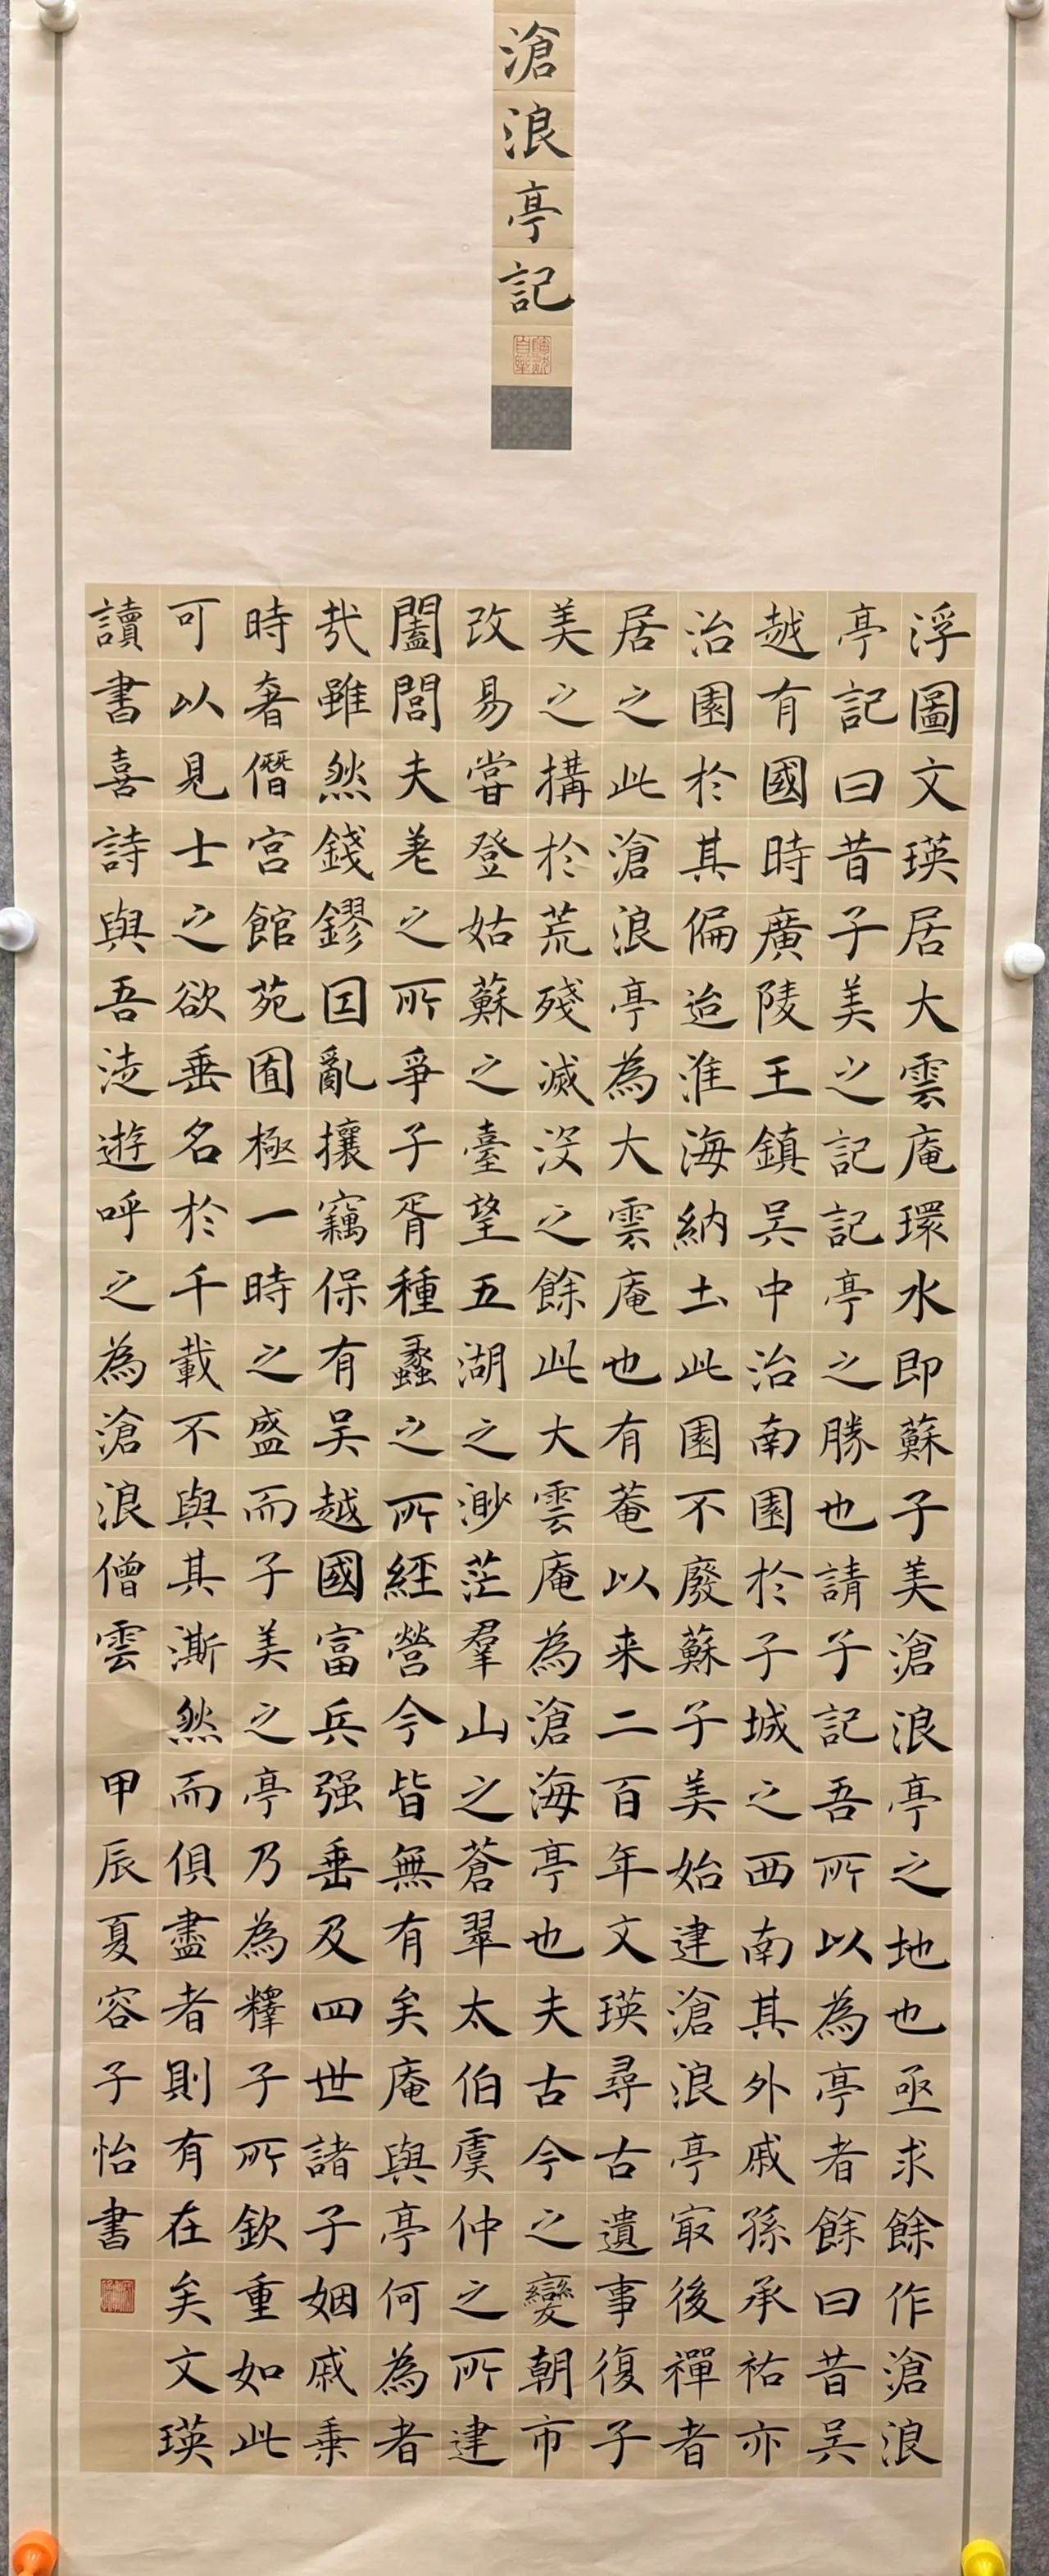 滄浪亭記
浮圖文瑛居大雲庵環水即蘇子美滄浪亭之地也亟求餘作滄浪
亭記曰昔子美之記記亭之勝也請子記吾所以為亭者餘曰昔吳
越有國時廣陵王鎮吳中治南園於子城之西南其外戚孫承祐亦
治園於其偏迨淮海納土此園不廢蘇子美始建滄浪亭冣後禪者
居之此滄浪亭為大雲庵也有菴以来二百年文瑛尋古遺事復子
美之搆於荒殘滅沒之餘此大雲庵為滄海亭也夫古今之變朝市
改易嘗登姑蘇之臺望五湖之渺茫羣山之蒼翠太伯虞仲之所建
闔閭夫差之所爭子胥種蠡之所經營今皆無有矣庵與亭何為者
哉雖然錢鏐因亂攘竊保有吳越國富兵强垂及四世諸子姻戚乘
時奢僭宮館苑囿極一時之盛而子美之亭乃為釋子所欽重如此
可以見士之欲垂名於千載不與其澌然而俱盡者則有在矣文瑛
讀書喜詩與吾徒遊呼之為滄浪僧雲 甲辰夏容子怡書